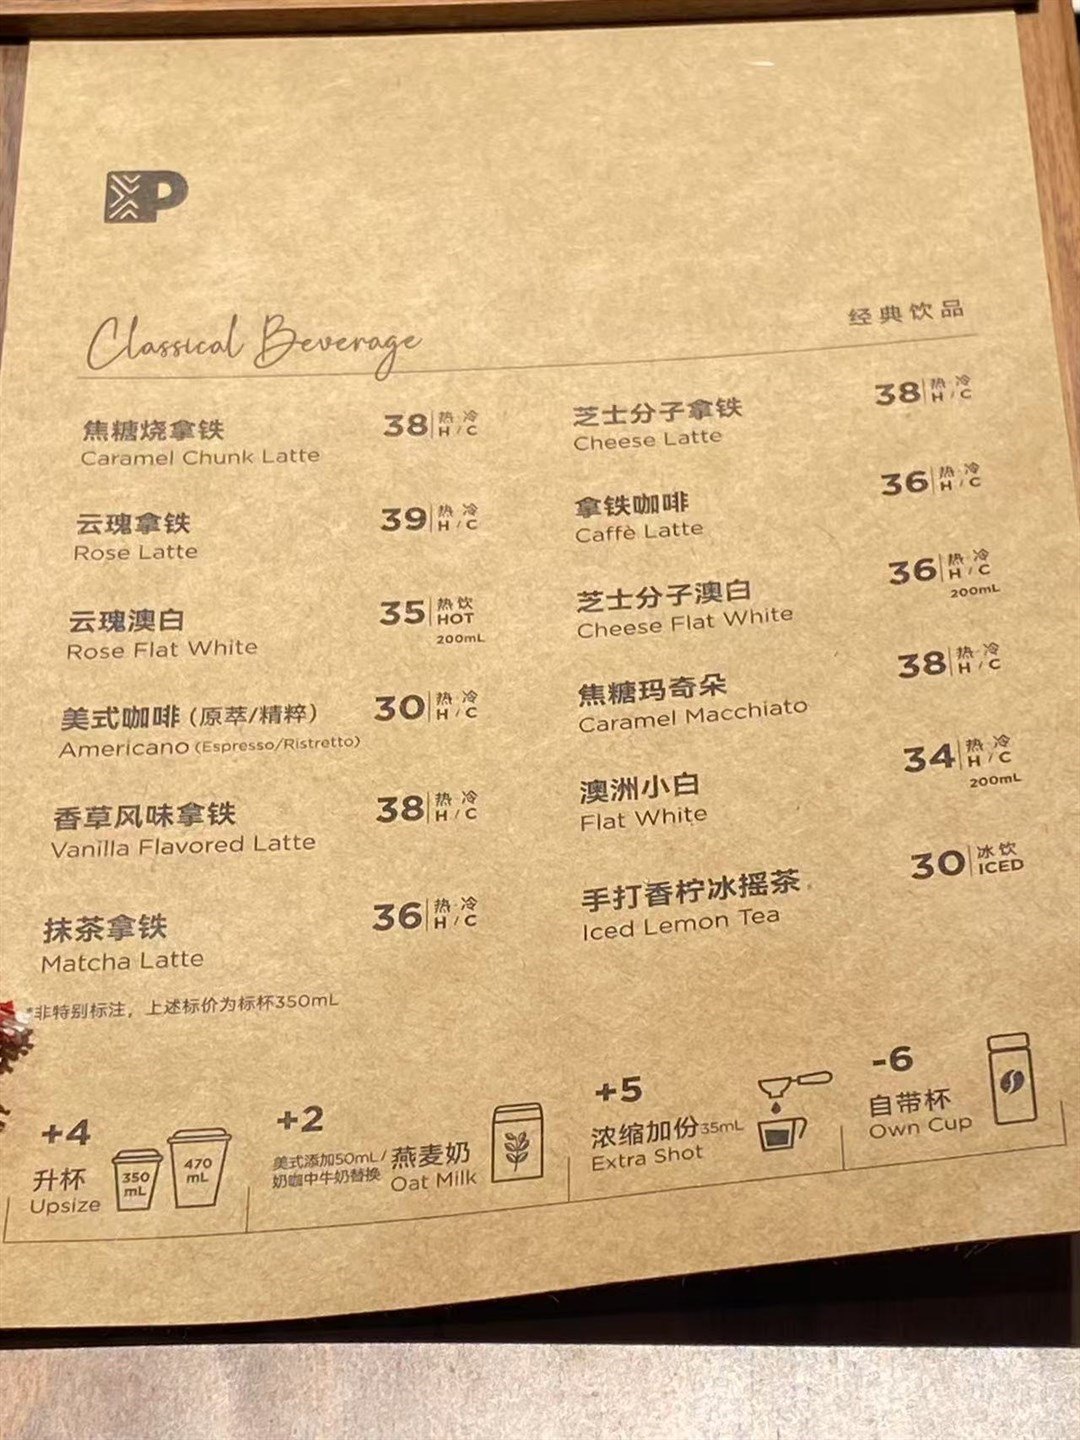 P
Classical Beverage
经典饮品
焦糖烧拿铁 38 热 冷
Caramel Chunk Latte H / C
云瑰拿铁 39 热 冷
Rose Latte H / C
云瑰澳白 35 热饮
Rose Flat White HOT
200mL
美式咖啡 (原萃/精粹) 30 热 冷
Americano (Espresso/Ristretto) H / C
香草风味拿铁 38 热 冷
Vanilla Flavored Latte H / C
抹茶拿铁 36 热 冷
Matcha Latte H / C
*非特别标注，上述标价为标杯350mL
芝士分子拿铁 38 热 冷
Cheese Latte H / C
拿铁咖啡 36 热 冷
Caffè Latte H / C
芝士分子澳白 36 热 冷
Cheese Flat White H / C
200mL
焦糖玛奇朵 38 热 冷
Caramel Macchiato H / C
澳洲小白 34 热 冷
Flat White H / C
200mL
手打香柠冰摇茶 30 冰饮
Iced Lemon Tea ICED
+4
升杯
Upsize
350
mL
470
mL
+2
美式添加50mL/
奶咖中牛奶替换
燕麦奶
Oat Milk
+5
浓缩加份35mL
Extra Shot
-6
自带杯
Own Cup